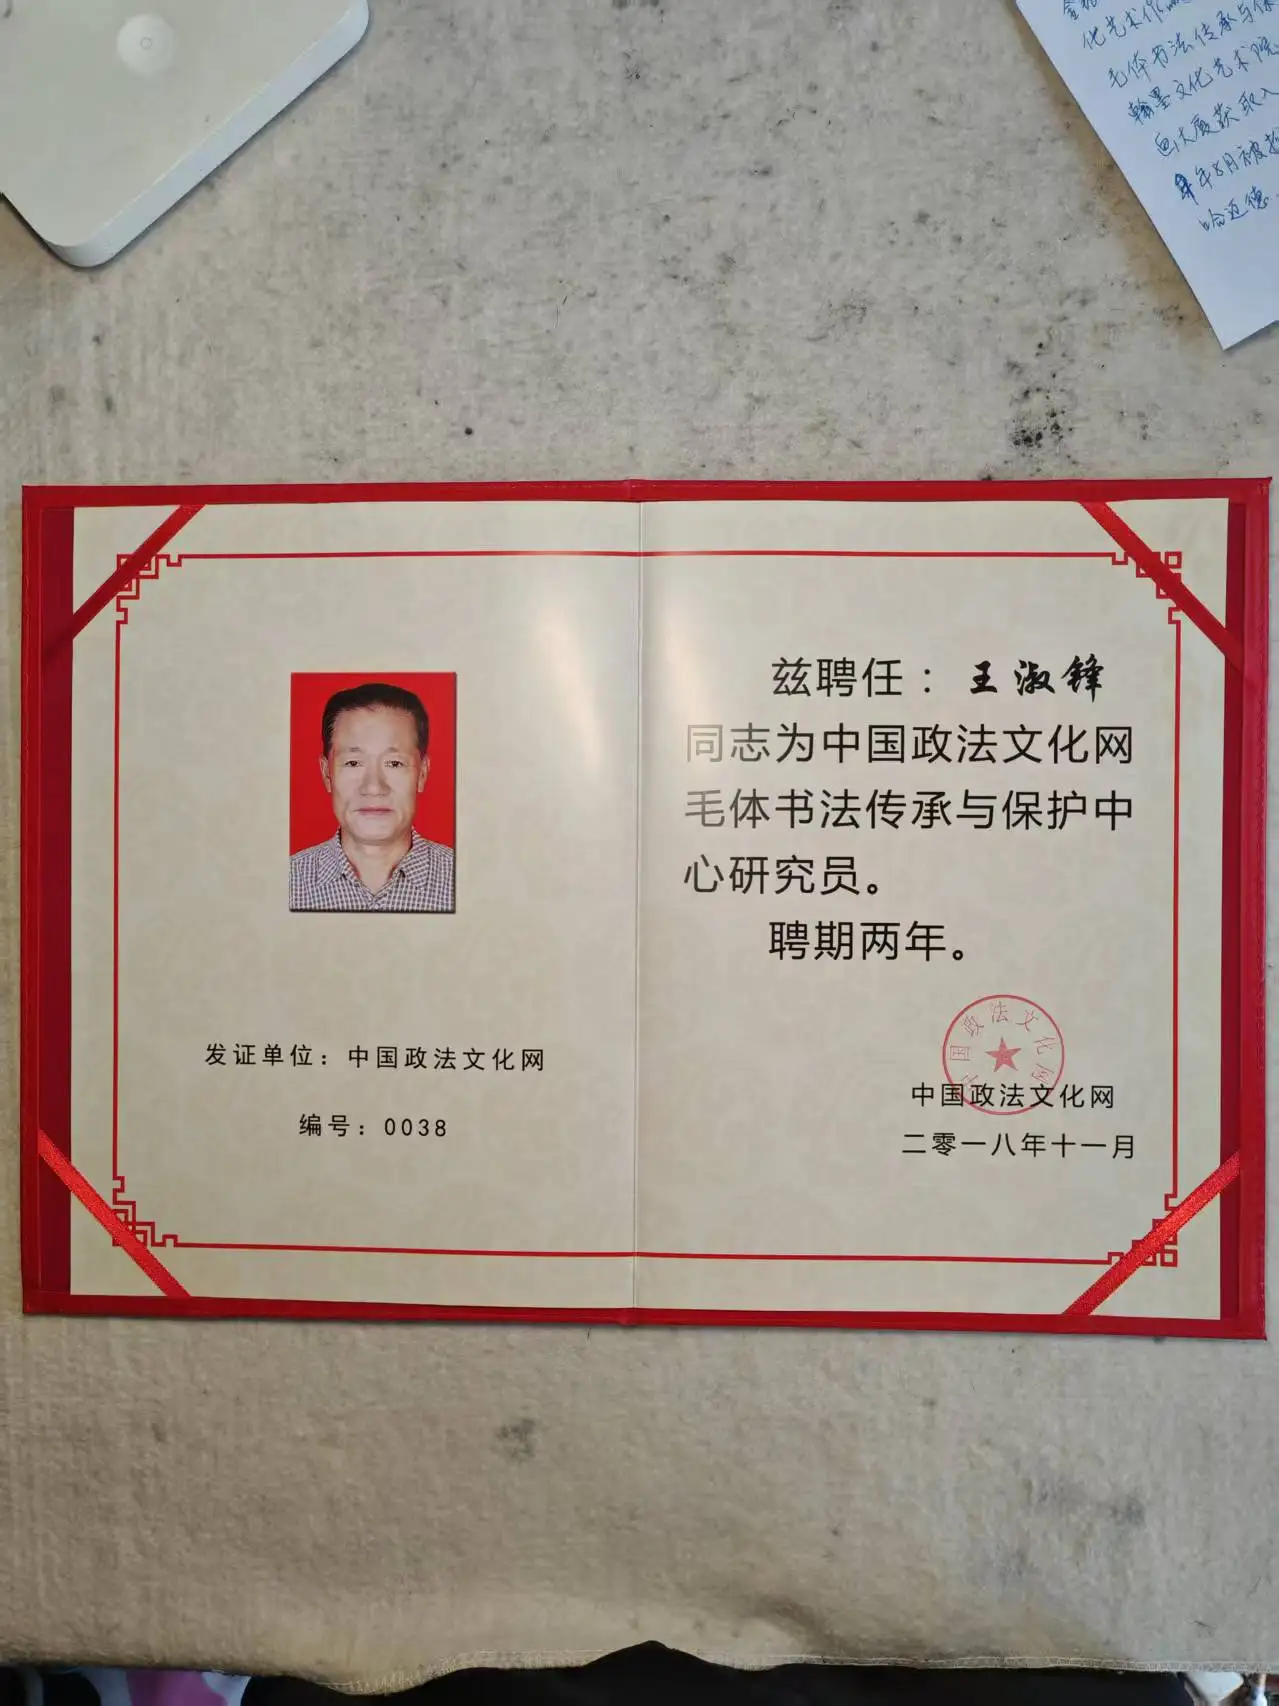 化艺术作品
毛体书法传承与保
翰墨文化艺术院
画大厦获取入
年8月被
哈迈德
兹聘任：王淑锋
同志为中国政法文化网
毛体书法传承与保护中
心研究员。
聘期两年。
发证单位：中国政法文化网
编号：0038
中国政法文化网
中国政法文化网
二零一八年十一月